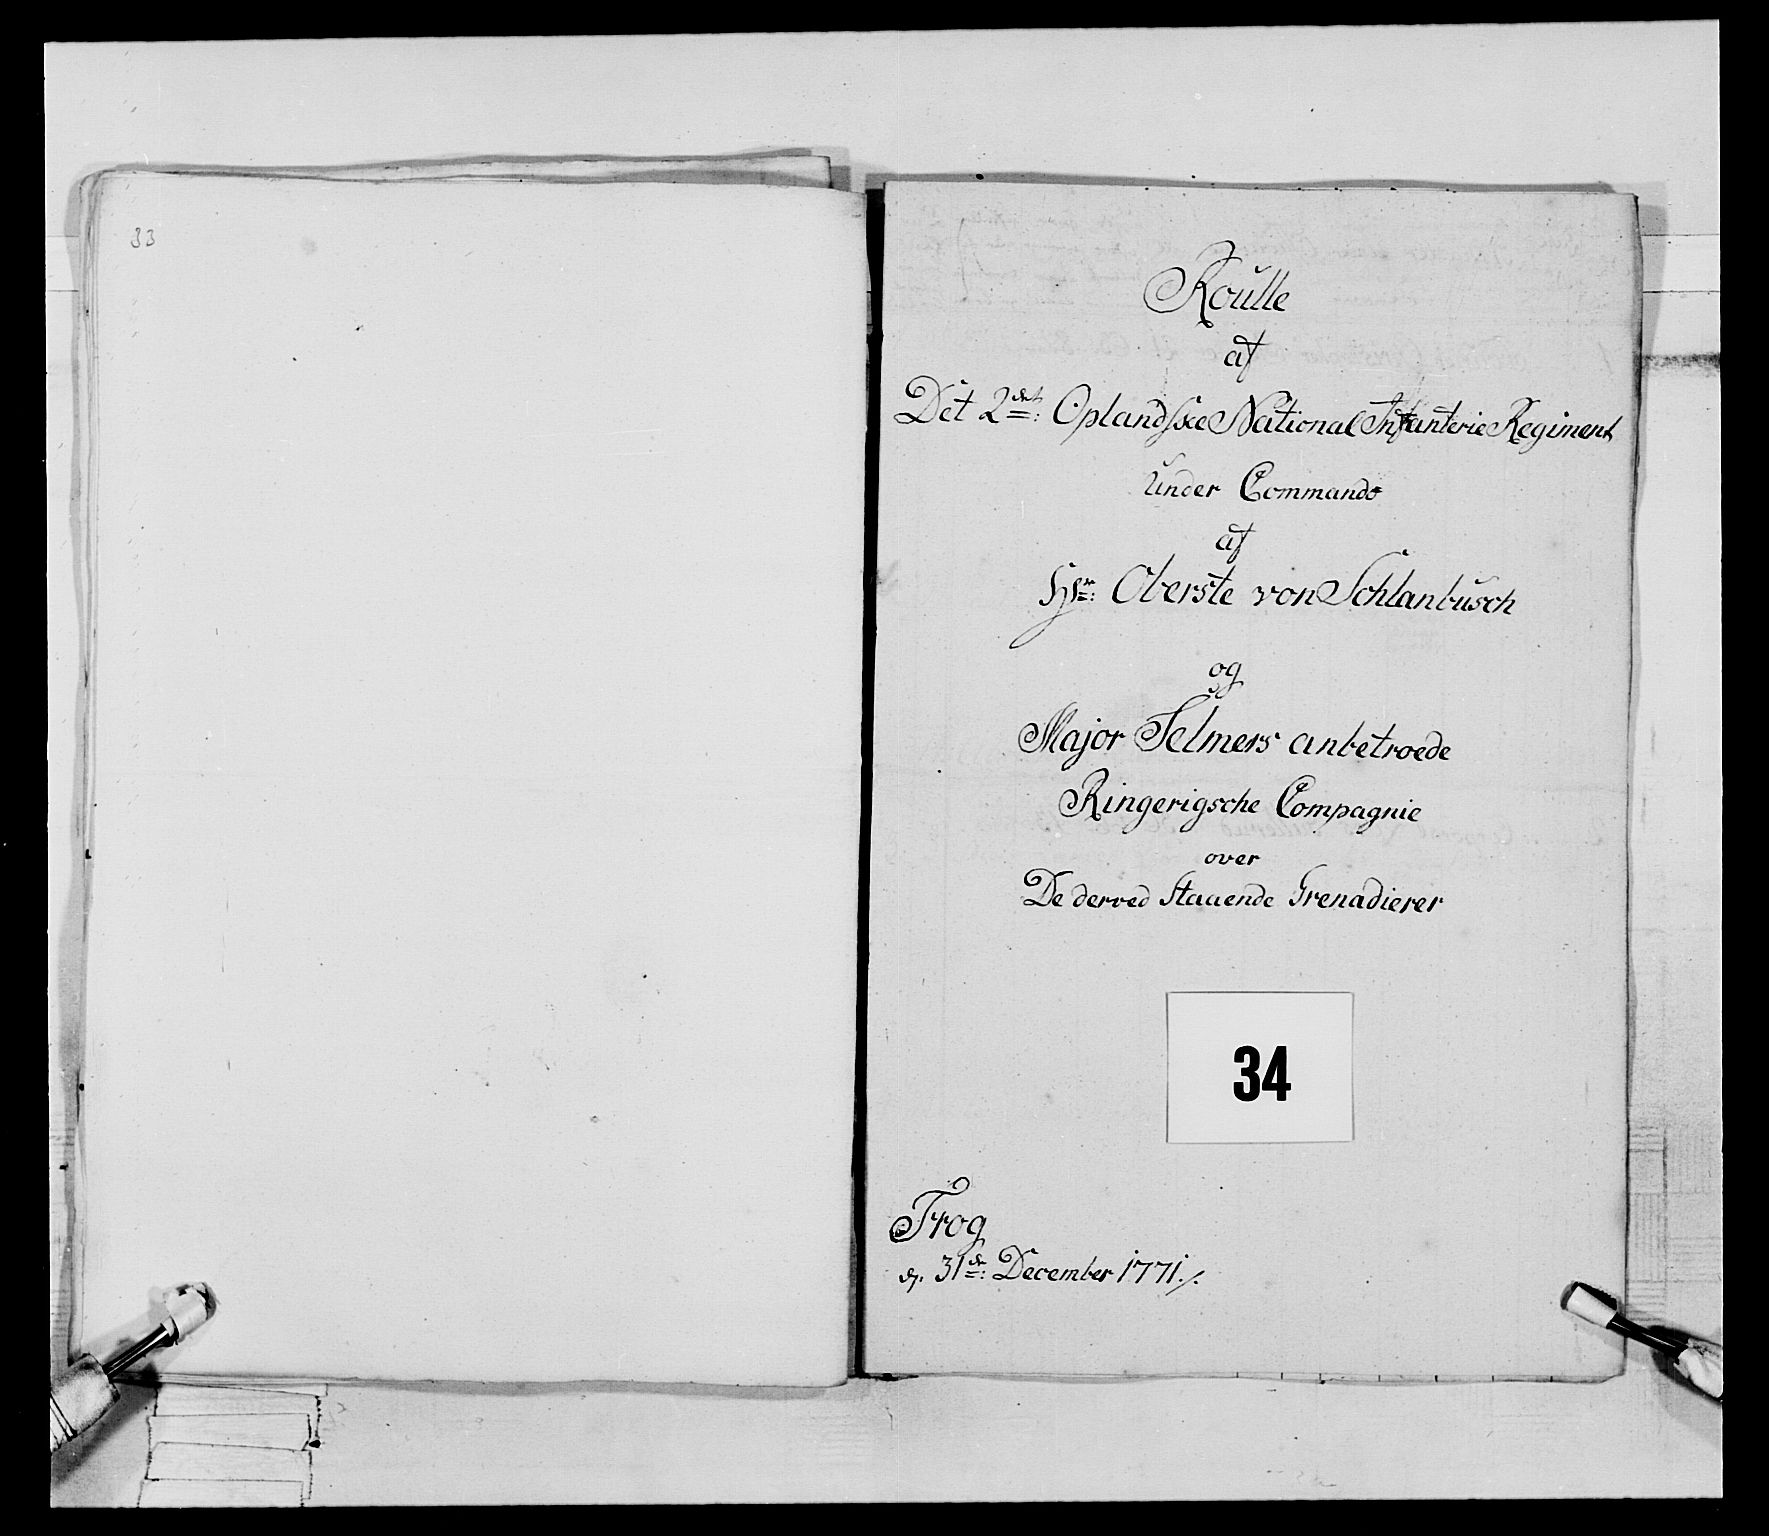 33
Roulle
af
Det 2det: Oplandske National Infanterie Regiment
under Commando
af
Hr: Oberste von Schlanbusch
og
Major Selmers anbetroede
Ringerigsche Compagnie
over
De derved staaende Grenadierer
34
Frog
d. 31de: December 1771./.